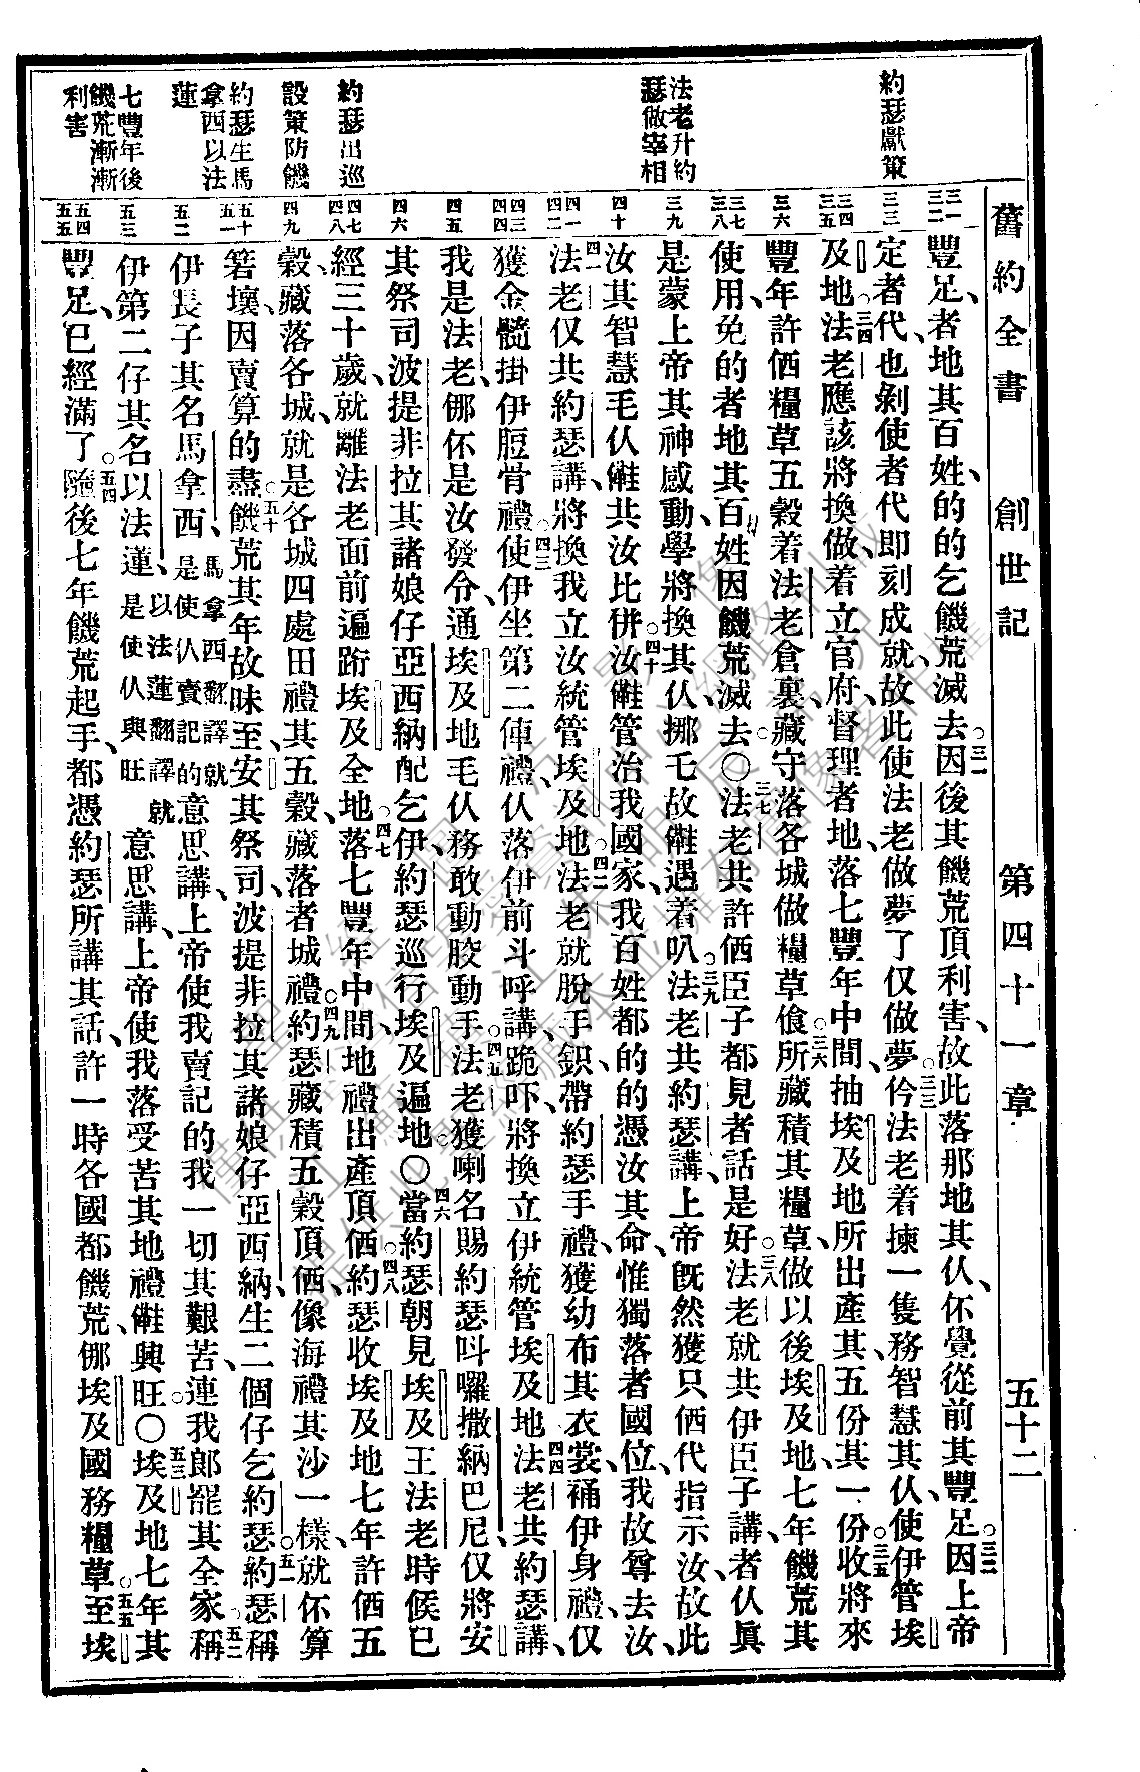 舊約全書 創世記 第四十一章 五十二
約瑟獻策
法老升約
瑟做宰相
約瑟出巡
設策防饑
約瑟生馬
拿西以法
蓮
七豐年後
饑荒漸漸
利害
三一
三二
三三
三四
三五
三六
三七
三八
三九
四十
四一
四二
四三
四四
四五
四六
四七
四八
四九
五十
五一
五二
五三
五四
五五
豐足、者地其百姓的的乞饑荒滅去。三一因後其饑荒頂利害、故此落那地其仈、伓覺從前其豐足。三二因上帝
定者代、也剝使者代即刻成就、故此使法老做夢了仅做夢。三三仱法老着揀一隻務智慧其仈、使伊管埃
及地。三四法老應該將換做、着立官府、督理者地、落七豐年中間、抽埃及地所出產其、五份其一份。三五收將來
豐年許偤糧草五穀着法老倉裏、藏守落各城做糧草飠。三六所藏積其糧草、做以後埃及地七年饑荒其
使用、免的者地其百姓因饑荒滅去。〇三七法老共許偤臣子都見者話是好。三八法老就共伊臣子講、者仈眞
是蒙上帝其神感動、學將換其仈、挪乇故㒰遇着叭。三九法老共約瑟講、上帝旣然獲只偤代指示汝、故此
汝其智慧乇仈㒰共汝比併。四十汝㒰管治我國家、我百姓都的的憑汝其命、惟獨落者國位、我故尊去汝、
四一法老仅共約瑟講、將換我立汝統管埃及地。四二法老就脫手鈬、帶約瑟手禮、獲幼布其衣裳、補伊身禮、仅
獲金髓、掛伊脰骨禮。四三使伊坐第二俥禮、仈落伊前斗呼講、跪吓、將換立伊統管埃及地。四四法老共約瑟講、
我是法老、㑚伓是汝發令、通埃及地乇仈務敢動骹動手。四五法老獲喇名賜約瑟呌囉撒納巴尼、仅將安
其祭司波提非拉其諸娘仔亞西納配乞伊、約瑟巡行埃及遍地。〇四六當約瑟朝見埃及王法老時候、已
經三十歲、就離法老面前遍䟰埃及全地。四七落七豐年中間、地禮出產頂偤。四八約瑟收埃及地七年許偤五
穀、藏落各城、就是各城四處田禮其五穀、藏落者城禮。四九約瑟藏積五穀頂偤、像海禮其沙一樣、就伓算
箬壞、因賣算的盡。五十饑荒其年故昧至、安其祭司、波提非拉其諸娘仔亞西納、生二個仔乞約瑟。五一約瑟稱
伊長子其名馬拿西、馬拿西翻譯就是使仈賣記的意思講、上帝使我賣記的我一切其艱苦、連我郎罷其全家。五二稱
伊第二仔其名以法蓮、以法蓮翻譯就是使仈興旺意思講、上帝使我落受苦其地禮㒰興旺。〇五三埃及地七年其
豐足、已經滿了。五四隨後七年饑荒起手、都憑約瑟所講其話、許一時各國都饑荒、㑚埃及國務糧草。五五至埃